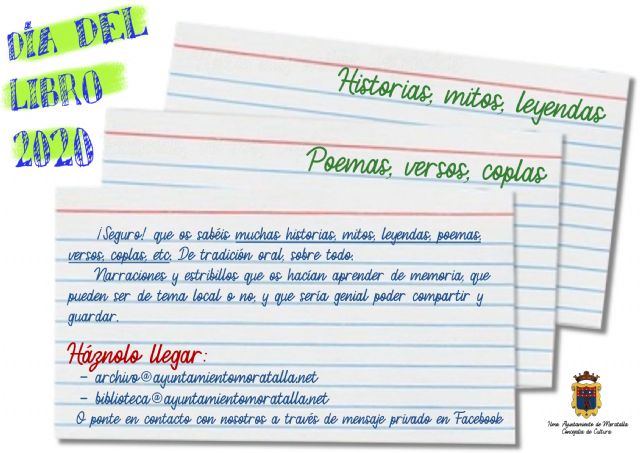 DÍA DEL
LIBRO
2020
Historias, mitos, leyendas
Poemas, versos, coplas
¡Seguro! que os sabéis muchas historias, mitos, leyendas, poemas,
versos, coplas, etc. De tradición oral, sobre todo.
Narraciones y estribillos que os hacían aprender de memoria, que
pueden ser de tema local o no, y que sería genial poder compartir y
guardar.
Háznolo llegar:
- archivo@ayuntamientomoratalla.net
- biblioteca@ayuntamientomoratalla.net
O ponte en contacto con nosotros a través de mensaje privado en Facebook
Ayuntamiento de Moratalla
Concejalía de Cultura